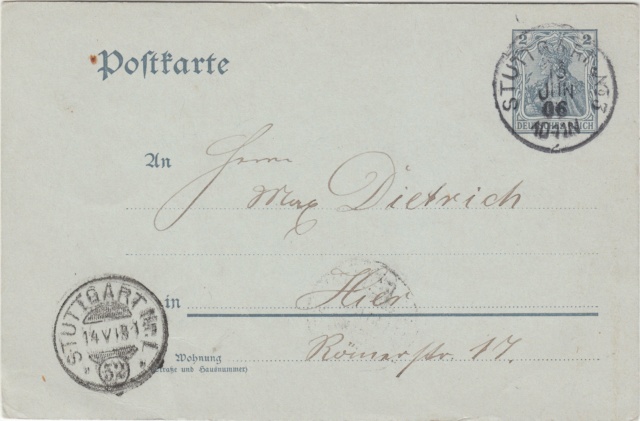 Postkarte
2 2
DEUTSCHES REICH
STUTTGART No 3
13
JUN
06
10-11N
An Herrn
Max Dietrich
in Hier
Wohnung Römerstr. 17.
(Straße und Hausnummer)
STUTTGART Nr. 1.
14 VI 8-
52